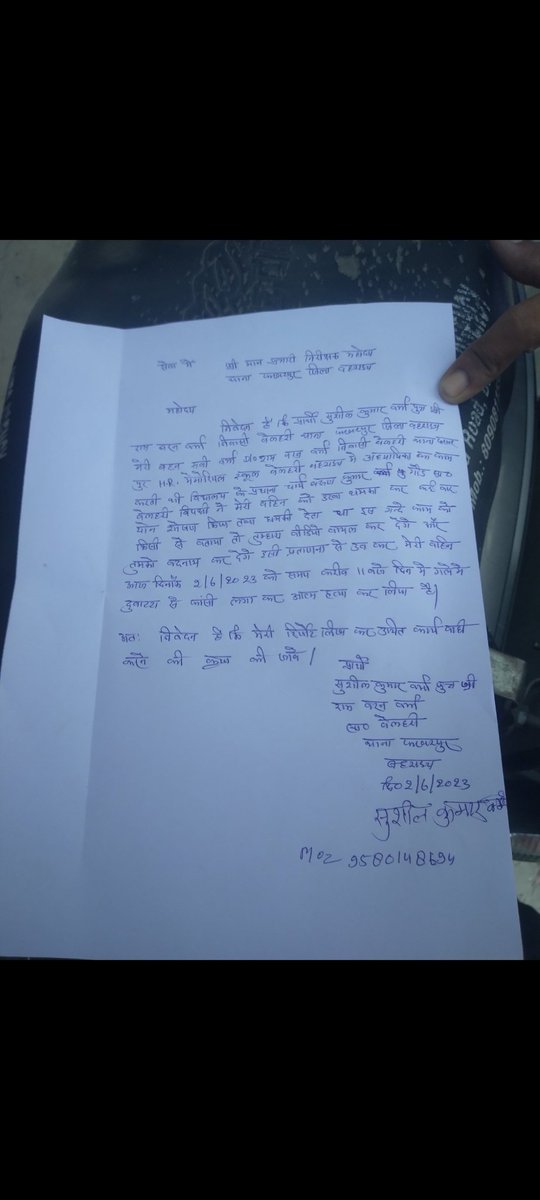 सेवा में श्री मान प्रभारी निरीक्षक महोदय
थाना फखरपुर जिला बहराइच
महोदय
निवेदन है कि प्रार्थी सुशील कुमार वर्मा पुत्र श्री
राम बरन वर्मा निवासी वेलहरी थाना फखरपुर जिला बहराइच
मेरी बहन वर्मा राम बरन वर्मा निवासी वेलहरी थाना
पुर H.R. मेमोरियल स्कूल वेलहरी बहराइच में अध्यापिका का काम
करती थी विद्यालय के प्रधाना चार्य कुमार
वेलहरी विपक्षी ने मेरी बहिन को डरा धमका कर
योन शोषण किया तथा धमकी देता था इस गन्दे काम को
किसी से बताया तो तुम्हारा वीडियो वायरल कर देंगे और
तुमको बदनाम कर देंगे इसी प्रताणना से उब कर मेरी बहिन
आज दिनाँक 2/6/2023 को समय करीब 11 बजे दिन में गले में
दुपट्टा से फांसी लगा कर आत्म हत्या कर लिया है।
अतः निवेदन है कि मेरी रिपोर्ट लिख कर उचित कार्य वाही
करने की कृपा की जाये।
प्रार्थी
सुशील कुमार वर्मा पुत्र श्री
राम बरन वर्मा
वेलहरी
थाना फखरपुर
बहराइच
दि० 2/6/2023
सुशील कुमार वर्मा
Mo2 9580148694